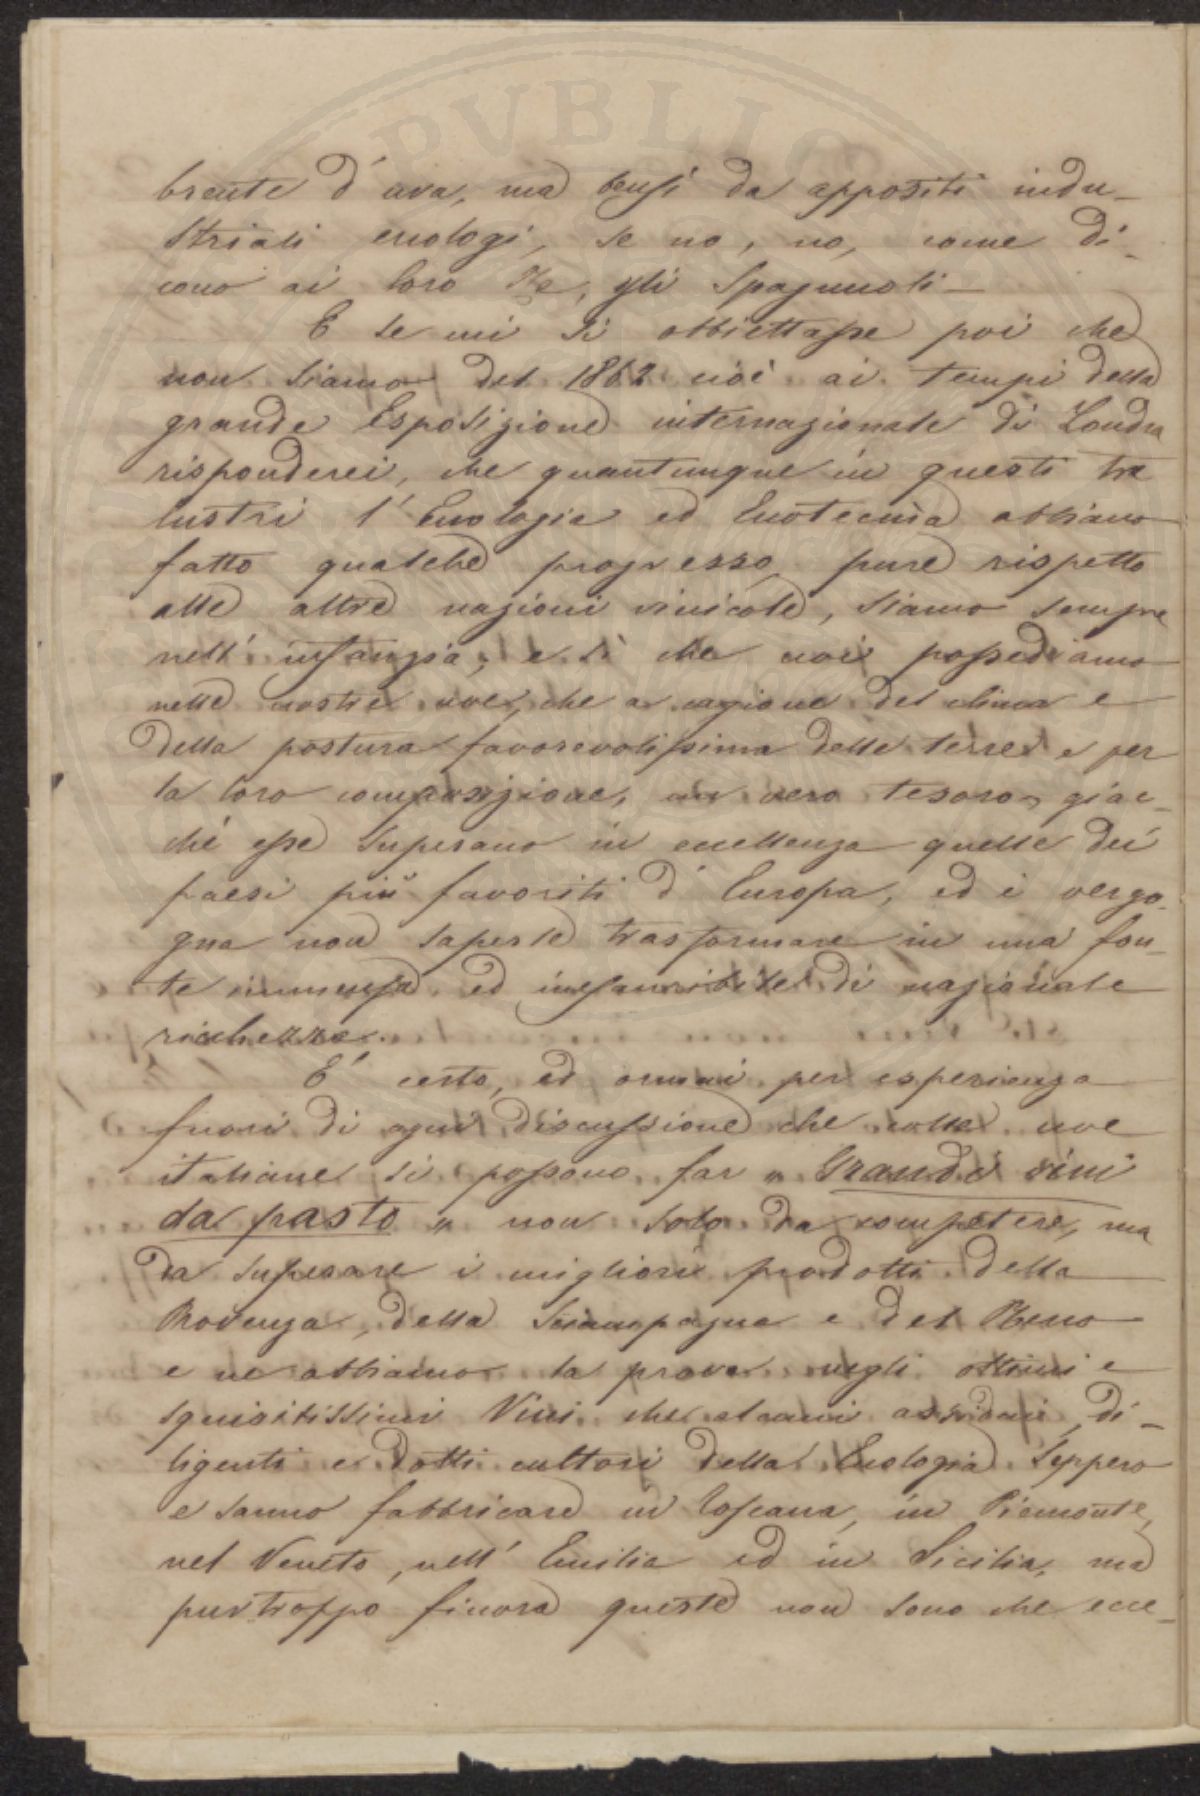 brente d'uva, ma bensì da appositi indu-
striali enologi, se no, no, come di-
cono ai loro Re, gli Spagnuoli—
E se mi si obbiettasse poi che
non siamo del 1862 cioè ai tempi della
grande Esposizione internazionale di Londra
risponderei, che quantunque in questi tre
lustri l'Enologia ed Enotecnia abbiano
fatto qualche progresso, pure rispetto
alle altre nazioni vinicole, siamo sempre
nell'infanzia, e sì che noi possediamo
nelle nostre uve, che a cagione del clima e
della postura favorevolissima delle terre e per
la loro composizione, un vero tesoro, giac-
chè esse superano in eccellenza quelle dei
paesi più favoriti d'Europa, ed è vergo-
gna non saperle trasformare in una fon-
te immensa ed inesauribile di nazionale
ricchezza.
E' certo, ed ormai per esperienza
fuori di ogni discussione che colle uve
italiane si possono far „ Grandi vini
da pasto „ non solo da competere, ma
da superare i migliori prodotti della
Provenza, della Sciampagna e del Reno
e ne abbiamo la prova negli ottimi e
squisitissimi Vini che alcuni assidui, di-
ligenti e dotti cultori della Enologia seppero
e sanno fabbricare in Toscana, in Piemonte,
nel Veneto, nell'Emilia ed in Sicilia, ma
purtroppo finora queste non sono che ecce-
PVBLICA